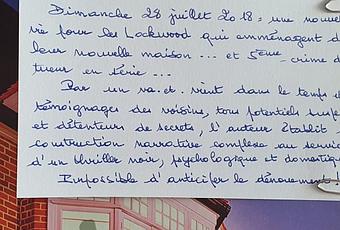 Dimanche 28 juillet 2018 : une nouve
vie pour les Lockwood qui amménagent d
leur nouvelle maison ... et 5ème crime d
tueur en série ...
Par un va.et.vient dans le temps e
témoignages des voisins, tous potentiels suspe
et détenteurs de secrets, l'auteur établit
construction narrative complexe au servic
d'un thriller noir, psychologique et domestiq
Impossible d'anticiper le dénouement !